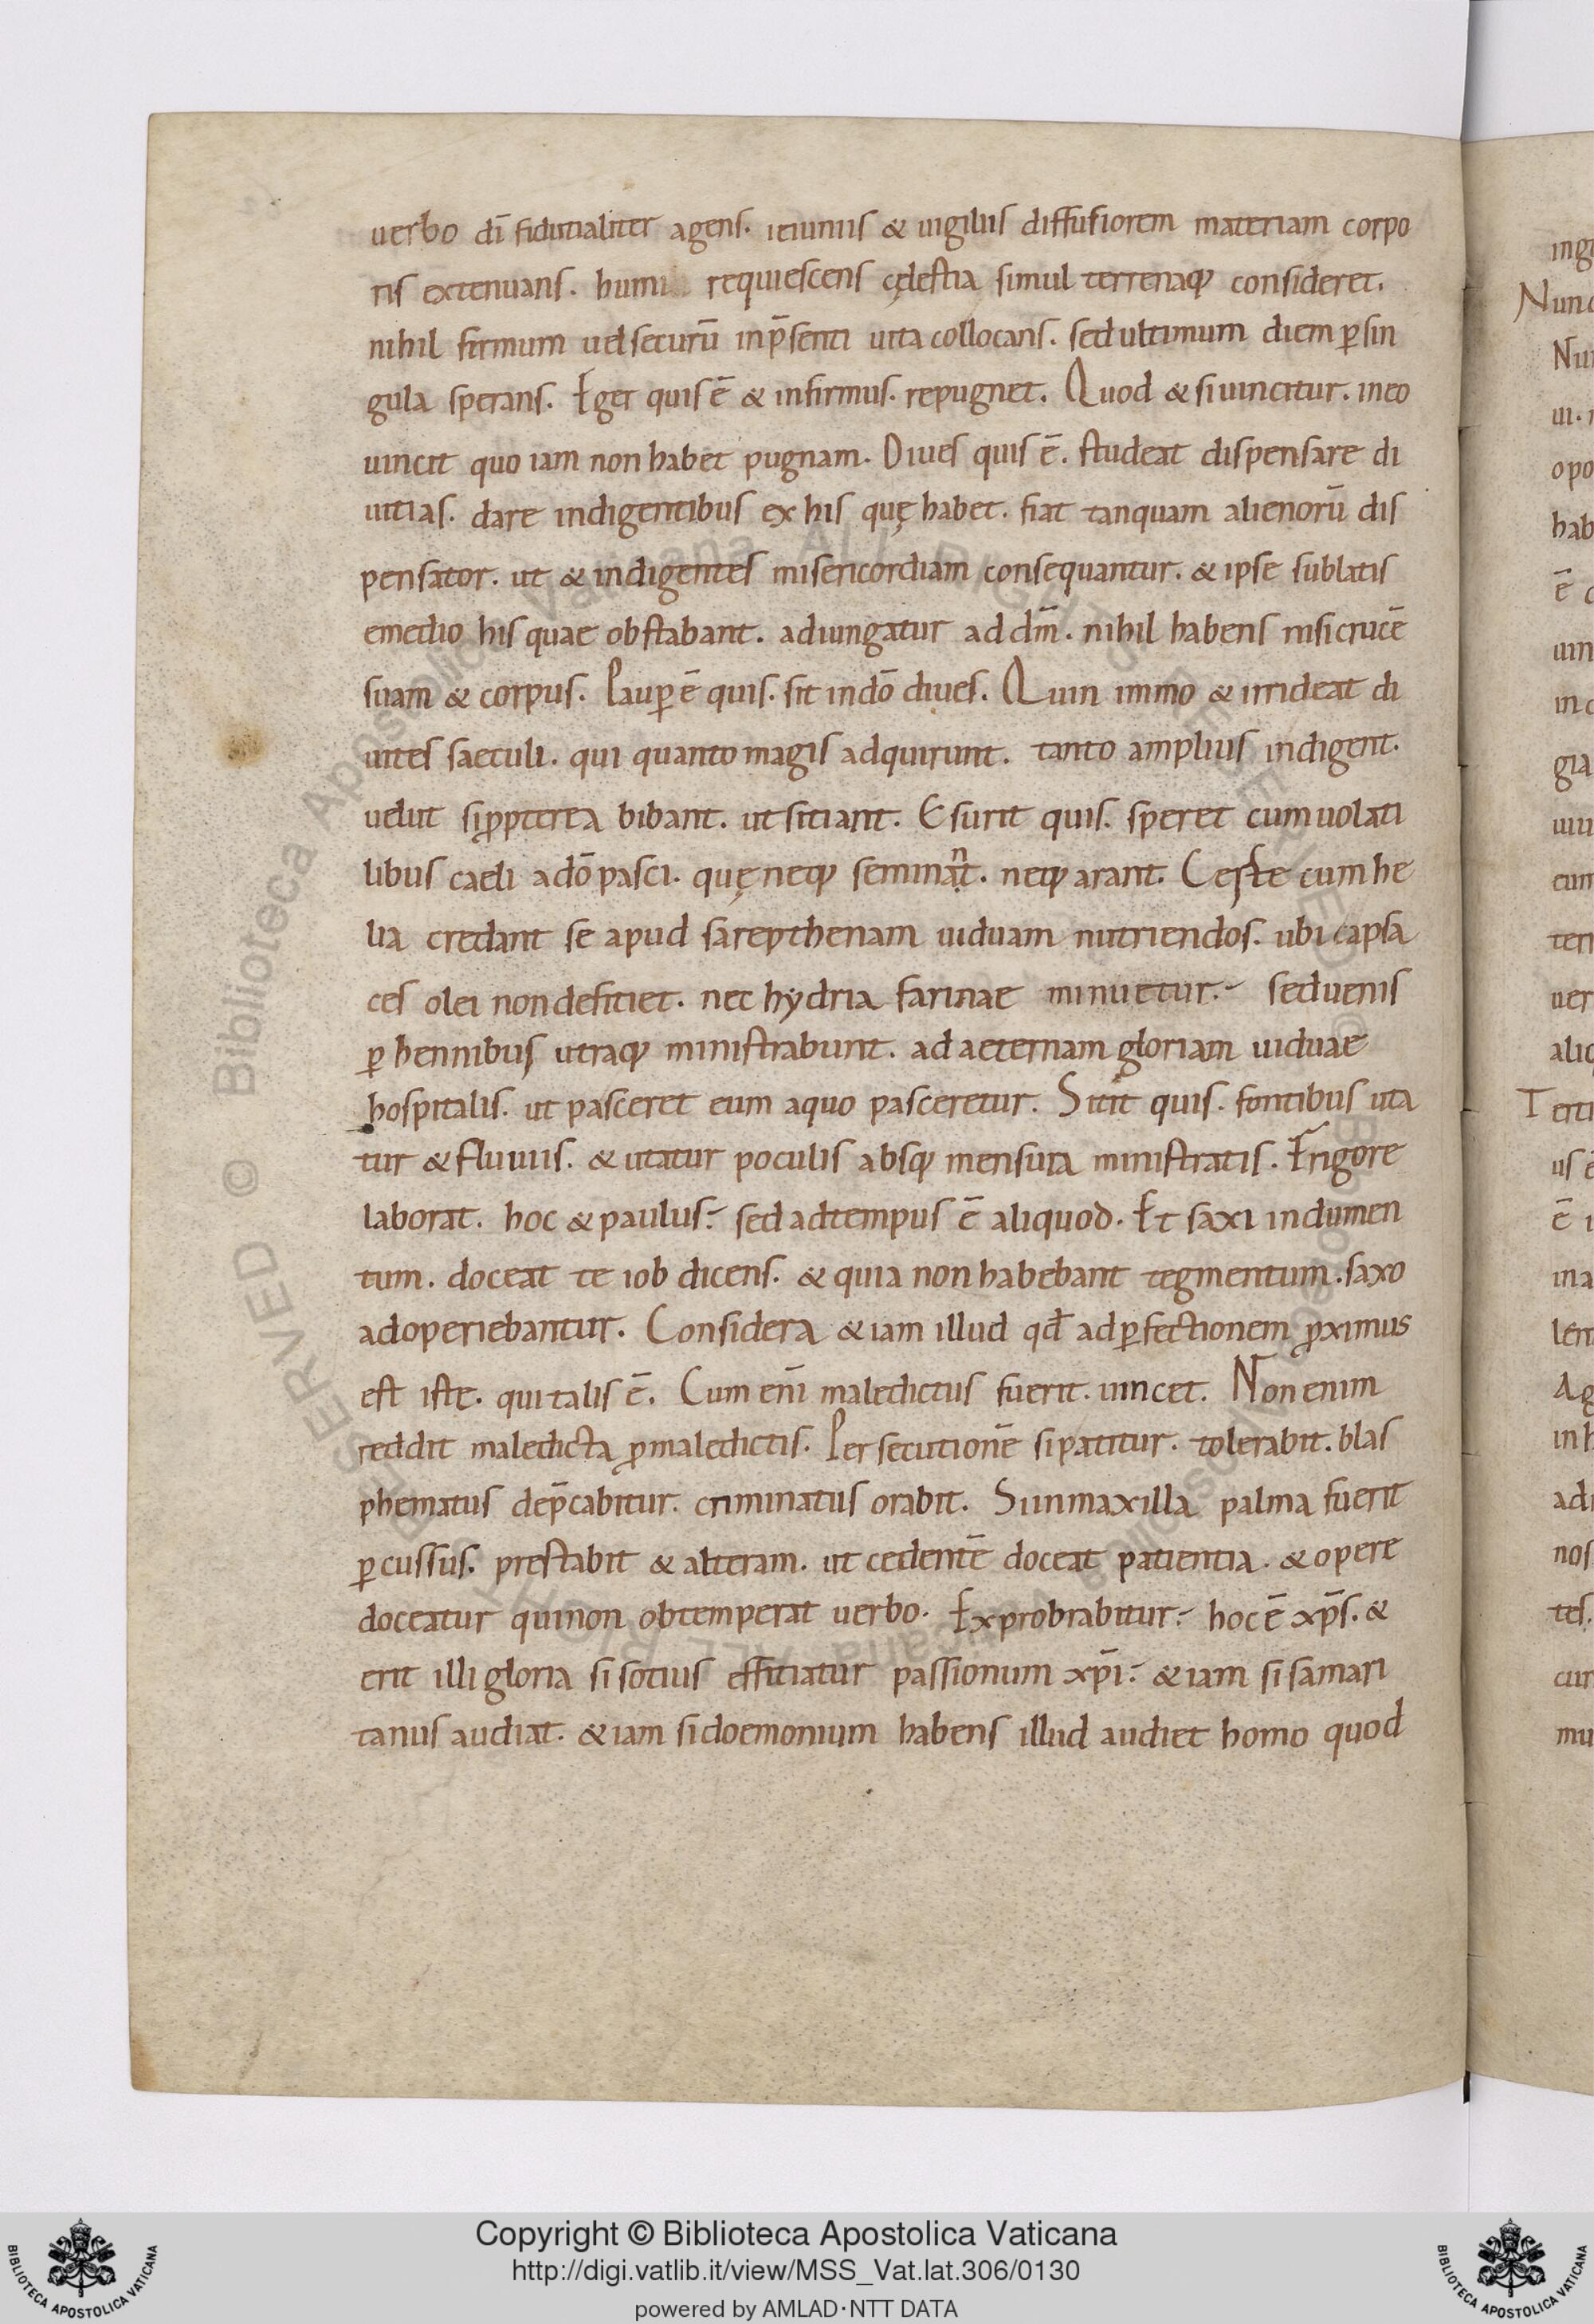 uerbo dī fidutialiter agens. ieiuniis & uigiliis diffusiorem materiam corpo
ris extenuans. humi requiescens cęlestia simul terrenaq; consideret.
nihil firmum uel securū in p̄senti uita collocans. sed ultimum diem ꝑ sin
gula sperans. Eger quis ē & infirmus. repugnet. Quod & si uincitur. in eo
uincit quo iam non habet pugnam. Diues quis ē. studeat dispensare di
uitias. dare indigentibus ex his quę habet. fiat tanquam alienorū dis
pensator. ut & indigentes misericordiam consequantur. & ipse sublatis
emedio his quae obstabant. adiungatur ad dm̄. nihil habens nisi crucē
suam & corpus. Pauꝑ ē quis. sit in dō diues. Quin immo & irrideat di
uites saeculi. qui quanto magis adquirunt. tanto amplius indigent.
uelut si ꝓpterea bibant. ut sitiant. Esurit quis. speret cum uolati
libus caeli a dō pasci. quę neq; seminant. neq; arant. Ceste cum he
lia credant se apud sarepthenam uiduam nutriendos. ubi capsa
ces olei non defitiet. nec hydria farinae minuetur. sed uenis
ꝑhennibus utraq; ministrabunt. ad aeternam gloriam uiduae
hospitalis. ut pasceret eum a quo pasceretur. Sitit quis. fontibus uta
tur & fluuiis. & utatur poculis absq; mensura ministratis. Frigore
laborat. hoc & paulus. sed ad tempus ē aliquod. Et saxi indumen
tum. doceat te iob dicens. & quia non habebant tegmentum. saxo
adoperiebantur. Considera & iam illud qđ ad ꝑfectionem ꝓximus
est iste. qui talis ē. Cum enī maledictus fuerit. uincet. Non enim
reddit maledicta ꝓ maledictis. Persecutionē si patitur. tolerabit. blas
phematus dep̄cabitur. criminatus orabit. Si in maxilla palma fuerit
ꝑcussus. prestabit & alteram. ut cedentē doceat patientia. & opere
doceatur qui non obtemperat uerbo. Exprobrabitur. hoc ē xp̄s. &
erit illi gloria si sotius effitiatur passionum xp̄i. & iam si samari
tanus audiat. & iam si doemonium habens illud audiet homo quod
ing
Nunc
Nu
ui.
opo
hab
ē
uin
in
gia
uiu
eum
terr
uer
aliq
Terti
us
ē
ma
Ag
in h
adi
nos
tes.
cur
mu
Biblioteca Apostolica Vaticana ALL RIGHTS RESERVED ©
Copyright © Biblioteca Apostolica Vaticana
http://digi.vatlib.it/view/MSS_Vat.lat.306/0130
powered by AMLAD·NTT DATA
BIBLIOTECA APOSTOLICA VATICANA
BIBLIOTECA APOSTOLICA VATICANA